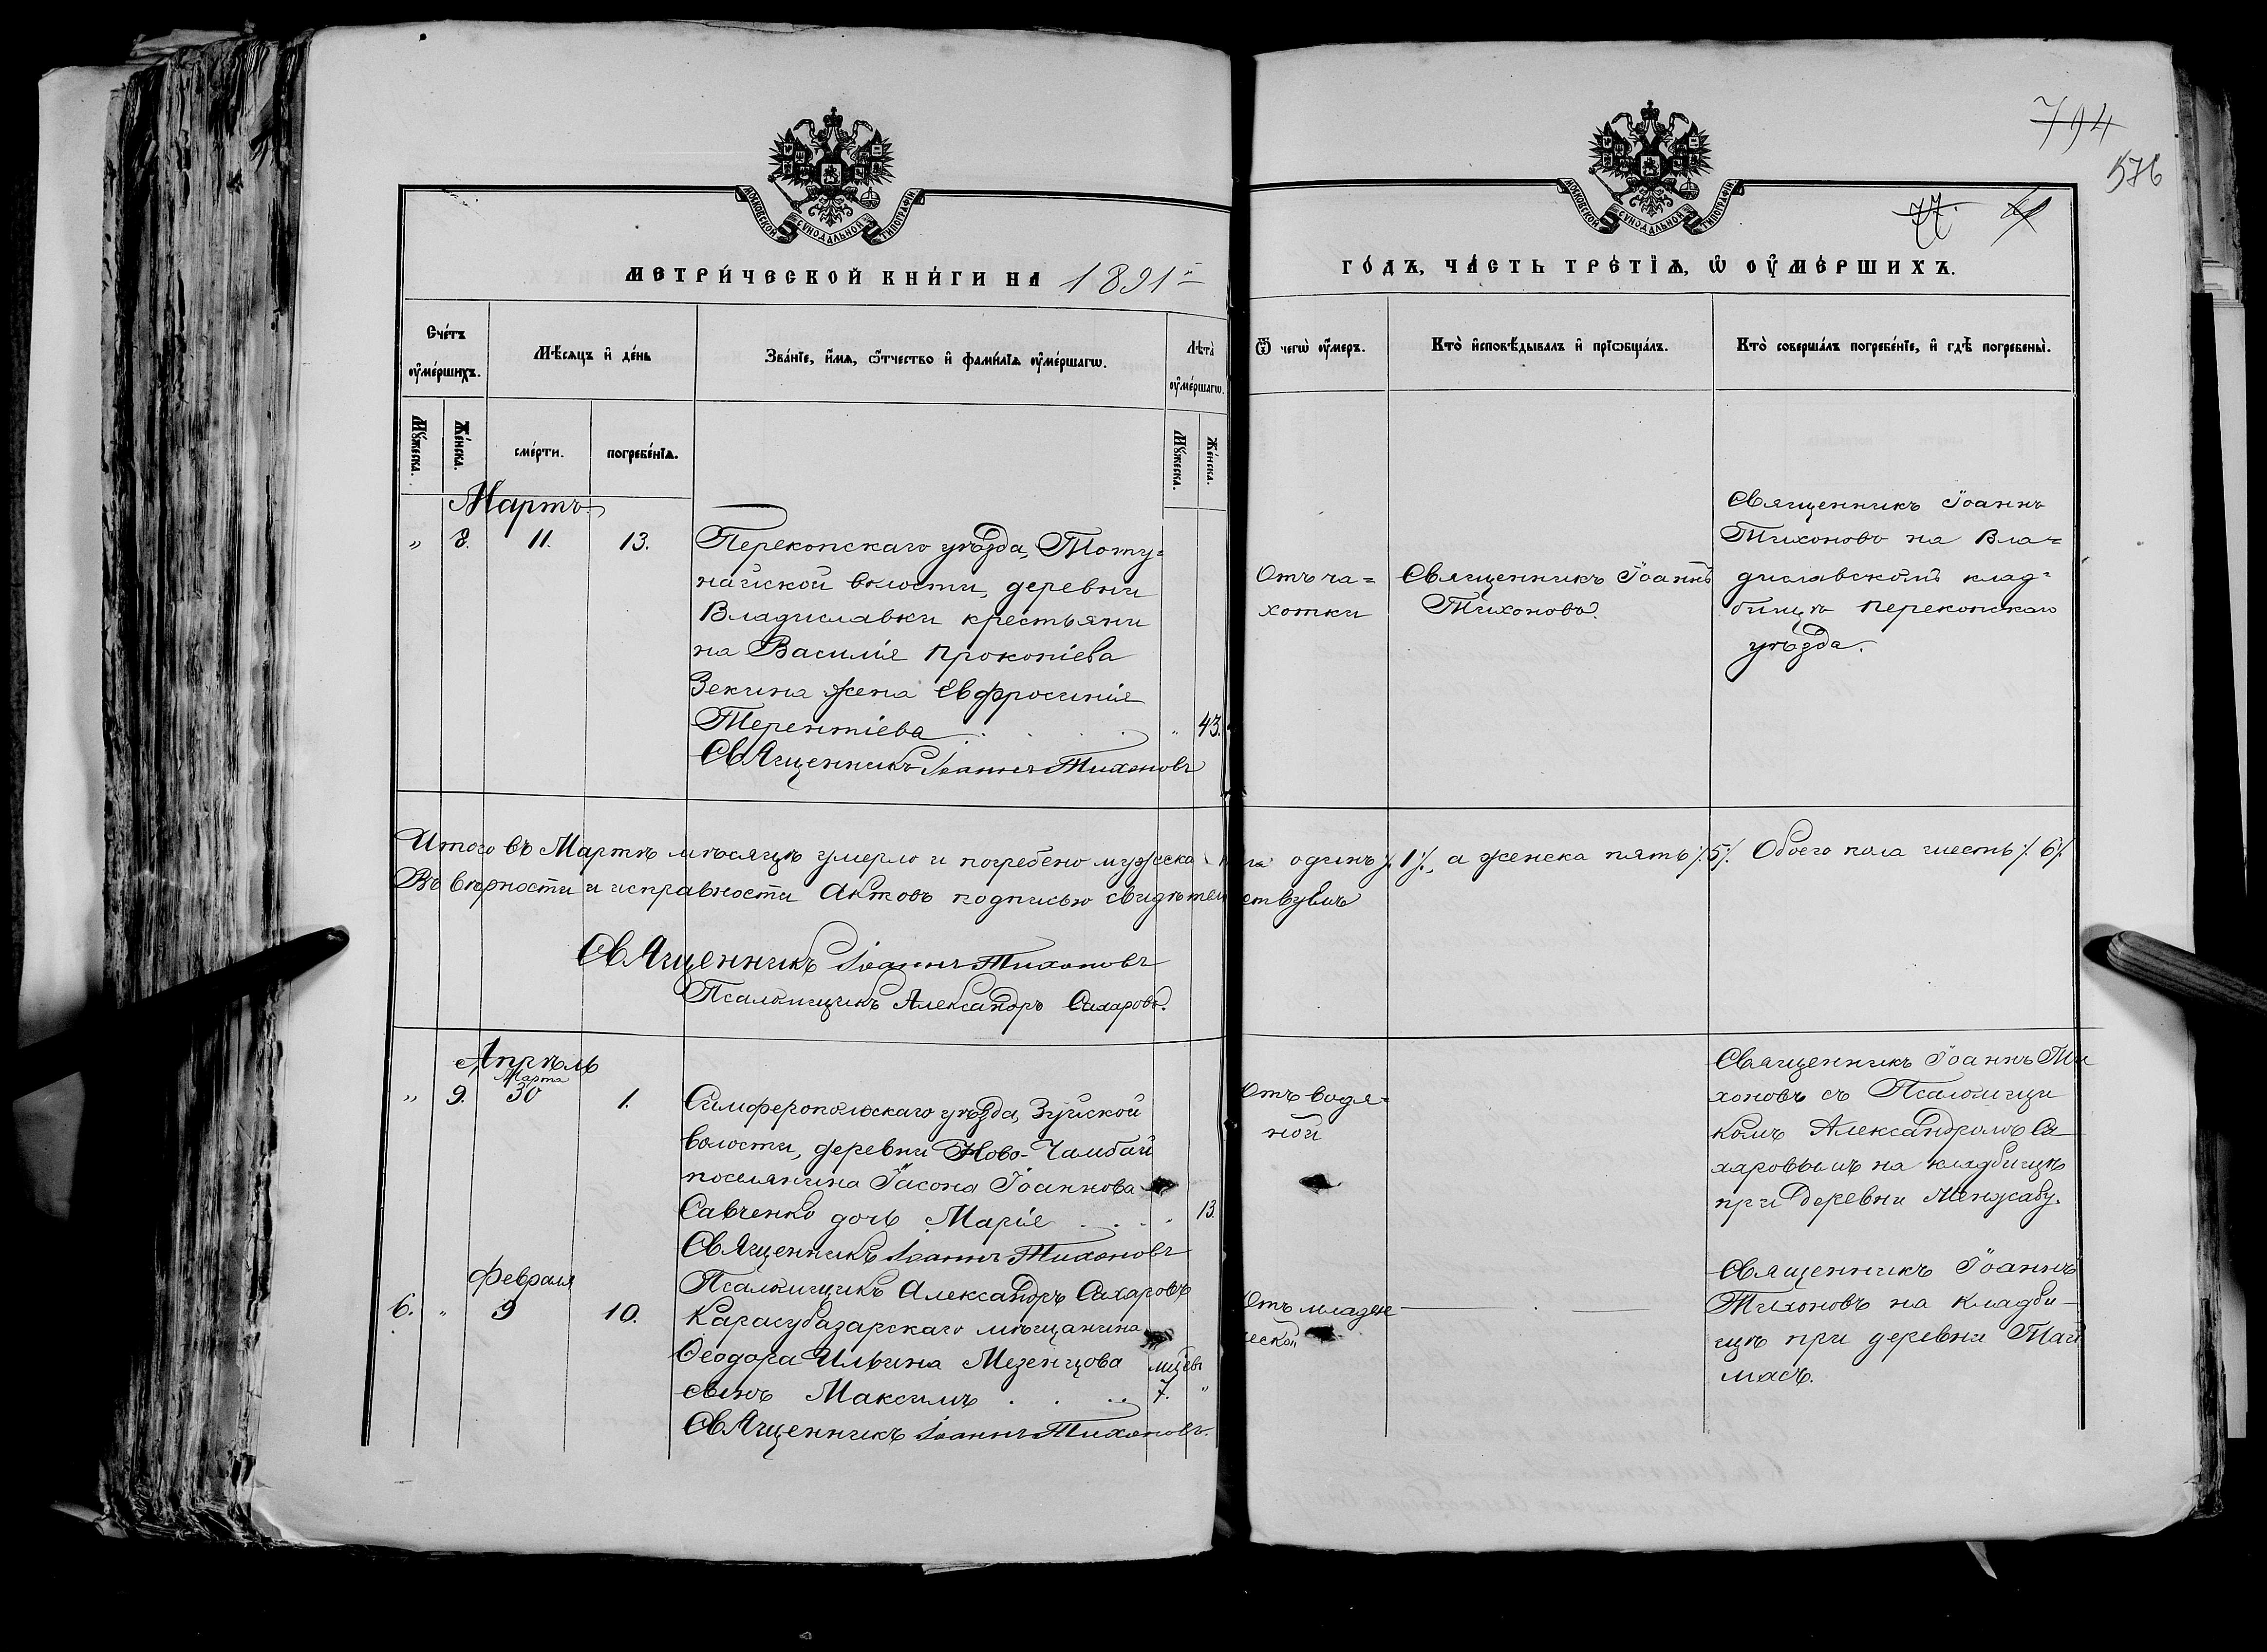 794
576
77.
МОСКОВСКОЙ СѴНОДАЛЬНОЙ ТИПОГРАФІИ
МОСКОВСКОЙ СѴНОДАЛЬНОЙ ТИПОГРАФІИ
МЕТРИ́ЧЕСКОЙ КНИ́ГИ НА 1891й
ГО́ДЪ, ЧА́СТЬ ТРЕ́ТІѦ, Ѡ҆ ОУ҆МЕ́РШИХЪ.
Сче́тъ оу҆ме́ршихъ.
Мѣ́сѧцъ и҆ де́нь
Зва́нїе, и҆́мѧ, ѻ҆́тчество и҆ фами́лїѧ оу҆ме́ршагѡ.
Лѣ́та оу҆ме́ршагѡ.
Ѿ чегѡ̀ оу҆́меръ.
Кто̀ и҆сповѣ́дывалъ и҆ прїѡбща́лъ.
Кто̀ соверша́лъ погребе́нїе, и҆ гдѣ̀ погребены̀.
Мꙋ́жеска.
Же́нска.
сме́рти.
погребе́нїѧ.
Мꙋ́жеска.
Же́нска.
Мартъ
„ 8. 11. 13.
Перекопскаго уѣзда, Тоту=
найской волости, деревни
Владиславки крестьяни
на Василія Прокопіева
Зекина жена Евфросинія
Терентіева . . . „ 43.
Священникъ Іоаннъ Тихоновъ
Отъ ча=
хотки
Священникъ Іоаннъ
Тихоновъ.
Священникъ Іоаннъ
Тихоновъ на Вла=
диславскомъ клад=
бищѣ Перекопскаго
уѣзда.
Итого въ Мартѣ мѣсяцѣ умерло и погребено мужеска пола одинъ ⁒1⁒, а женска пять ⁒5⁒. Обоего пола шесть ⁒6⁒
Въ вѣрности и исправности Актовъ подписью свидѣтельствуемъ
Священникъ Іоаннъ Тихоновъ
Псаломщикъ Александръ Сахаровъ.
Апрѣль
Марта
„ 9. 30 1.
Симферопольскаго уѣзда, Зуйской
волости, деревни Ново-Чамбай
поселянина Іасона Іоаннова
Савченко дочь Марія . . . „ 13.
Священникъ Іоаннъ Тихоновъ
Псаломщикъ Александръ Сахаровъ
Отъ водя-
ной
Священникъ Іоаннъ Ти
хоновъ съ Псаломщи
комъ Александромъ Са
харовымъ на кладбищѣ
при деревни Менжабу.
Февраля
6. „ 9 10.
Карасубазарскаго мѣщанина
Ѳеодора Ильина Мезенцова
сынъ Максимъ . . . 7. „
Священникъ Іоаннъ Тихоновъ.
Отъ младен
ческой
Священникъ Іоаннъ
Тихоновъ на Кладби-
щѣ при деревни Тай
масъ.